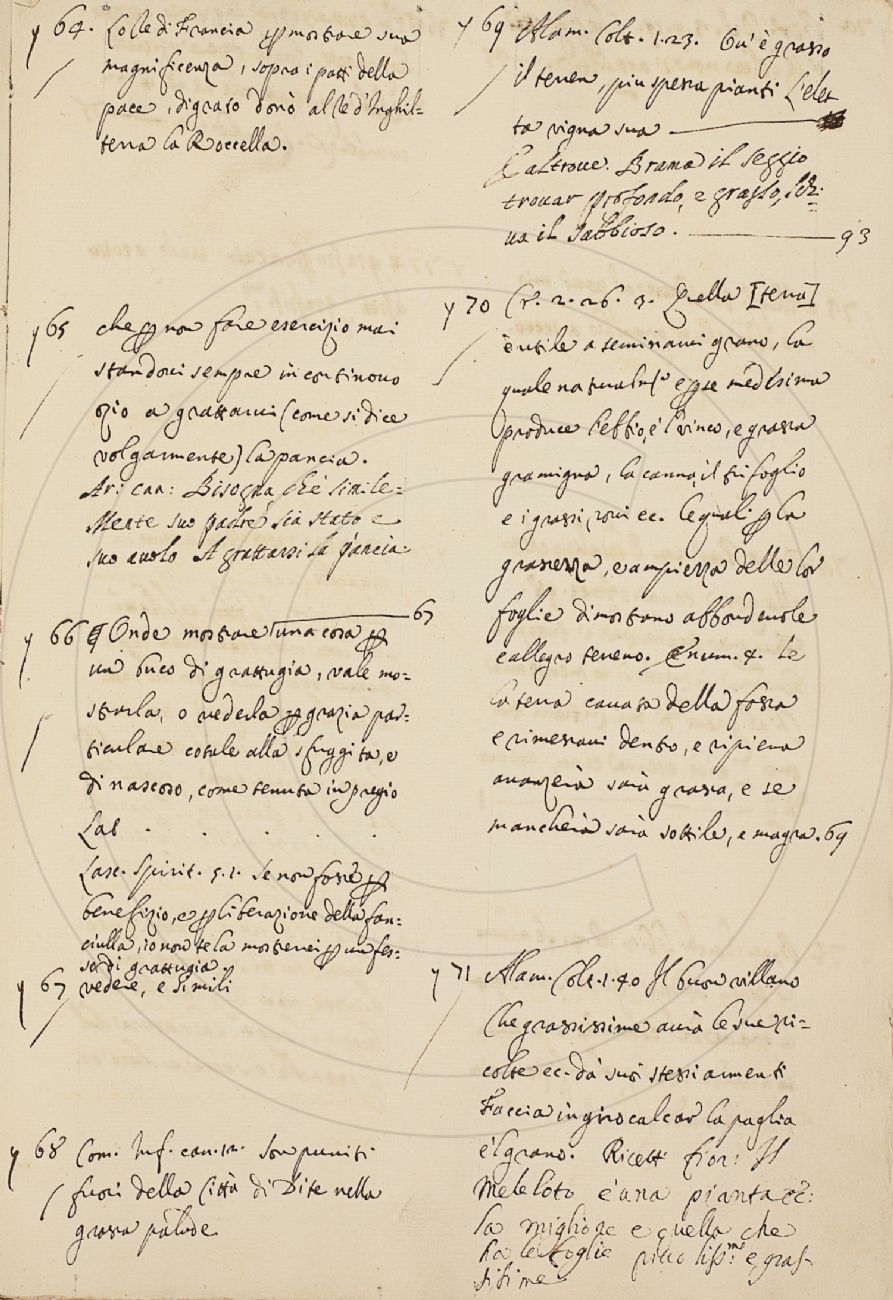 y 64. Colle di Francia per mostrare sua
magnificenza, sopra i patti della
pace, di graso donò al Re d'Inghil=
terra la Roccella.
y 65 che per non fare esercizio mai
standovi sempre in continovo
ozio a grattarvi (come si dice
volgarmente) la pancia.
Ar: Cas: Bisogna che simile=
Mente suo padre sia stato e
suo avolo A grattarsi la pancia.
67
y 66 Onde mostrare una cosa per
un buco di grattugia, vale mo=
strarla, o vederla per grazia par=
ticulare cotale alla sfuggita, e
di nascoso, come tenuta in pregio
Lat . . . .
Lasc. Spirit. 5. 1. Se non fosse per
benefizio, e per liberazione della fan=
ciulla, io non te la mosterrei per un fes=
so di grattugia.
y 67 vedere, e simili
y 68 Com. Inf. can. 11. Son puniti
fuori della Città di Dite nella
grassa palude
y 69 Alam. Colt. 1. 23. Ov' è grasso
il terren, più spessa pianti L'elet
ta vigna sua
E altrove. Brama il seggio
trovar profondo, e grasso, Schi=
va il sabbioso. 93
y 70 Cr. 2. 26. 3. Quella [terra]
è utile a seminarvi grano, la
quale naturalmte per se medesima
produce l'ebbio, e 'l vinco, e grassa
gramigna, la canna, il trifoglio
e i grassi, rovi ec. le quali per la
grassezza, e ampiezza delle lor
foglie dimostrano abbondevole
e allegro terreno. E num. 4. Se
la terra cavata della fossa
e rimessavi dentro, e ripiena
avanzerà sarà grassa, e se
mancherà sarà sottile, e magra. 69
y 71 Alam. Colt. 1. 40 Il buon villano
Che grassissime avrà le sue ri=
colte ec. dà suoi stessi armenti
Faccia in giro calcar la paglia
e 'l grano. Ricett. Fior: Il
Meleloto è una pianta ec:
la migliore e quella che
ha le foglie e gras-
sisime